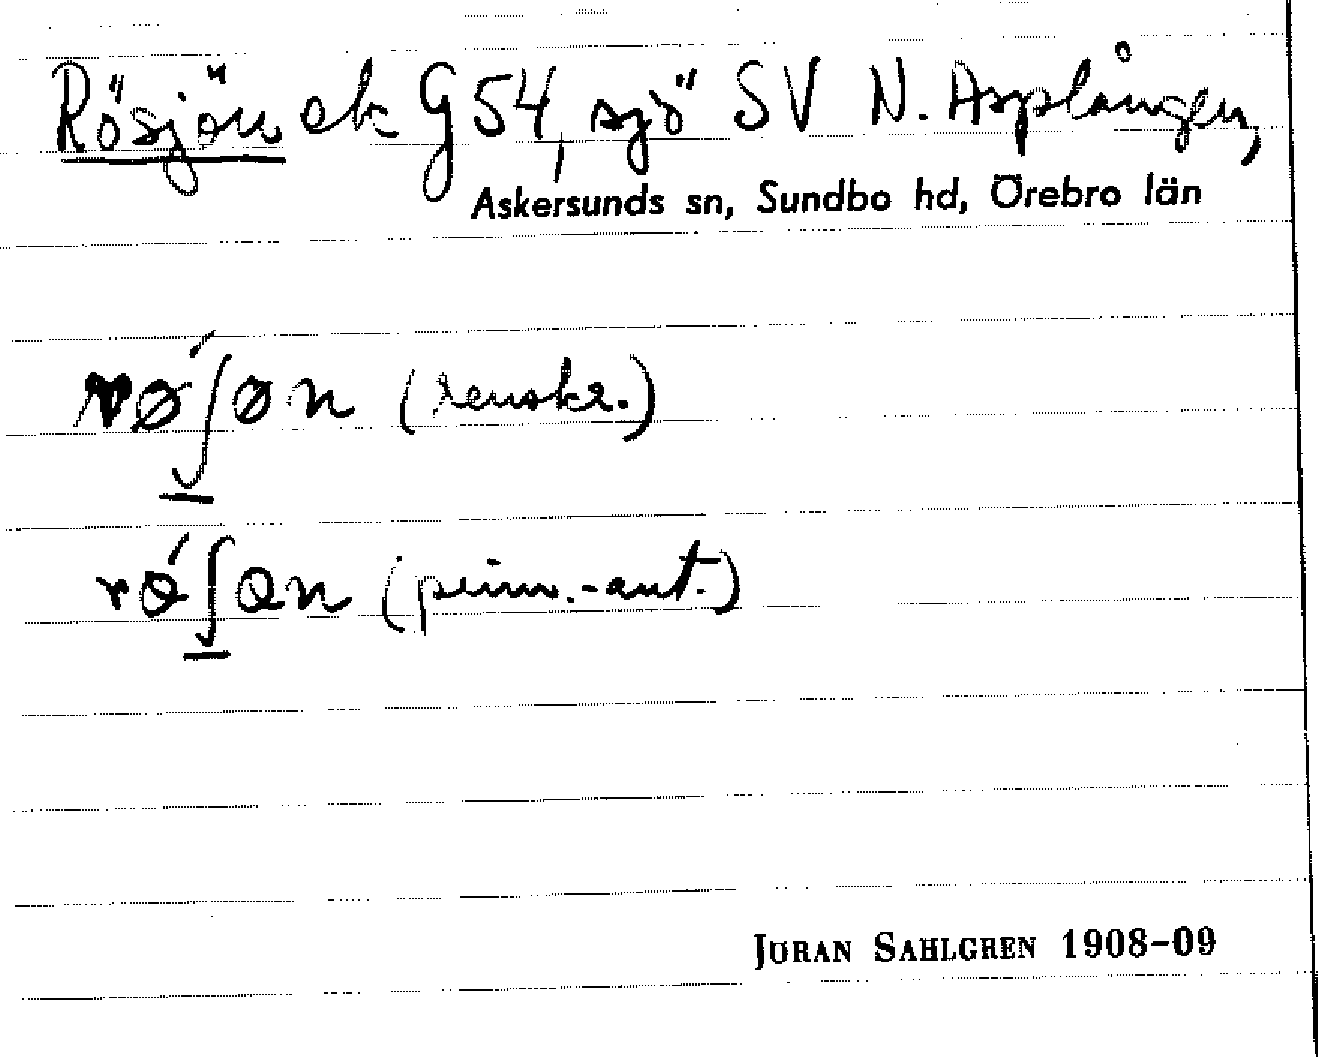 Rösjön ek G54, sjö SV N. Asplången,
Askersunds sn, Sundbo hd, Örebro län
rǿʃøn (renskr.)
rǿʃan (prim.-ant.)
JÖRAN SAHLGREN 1908-09